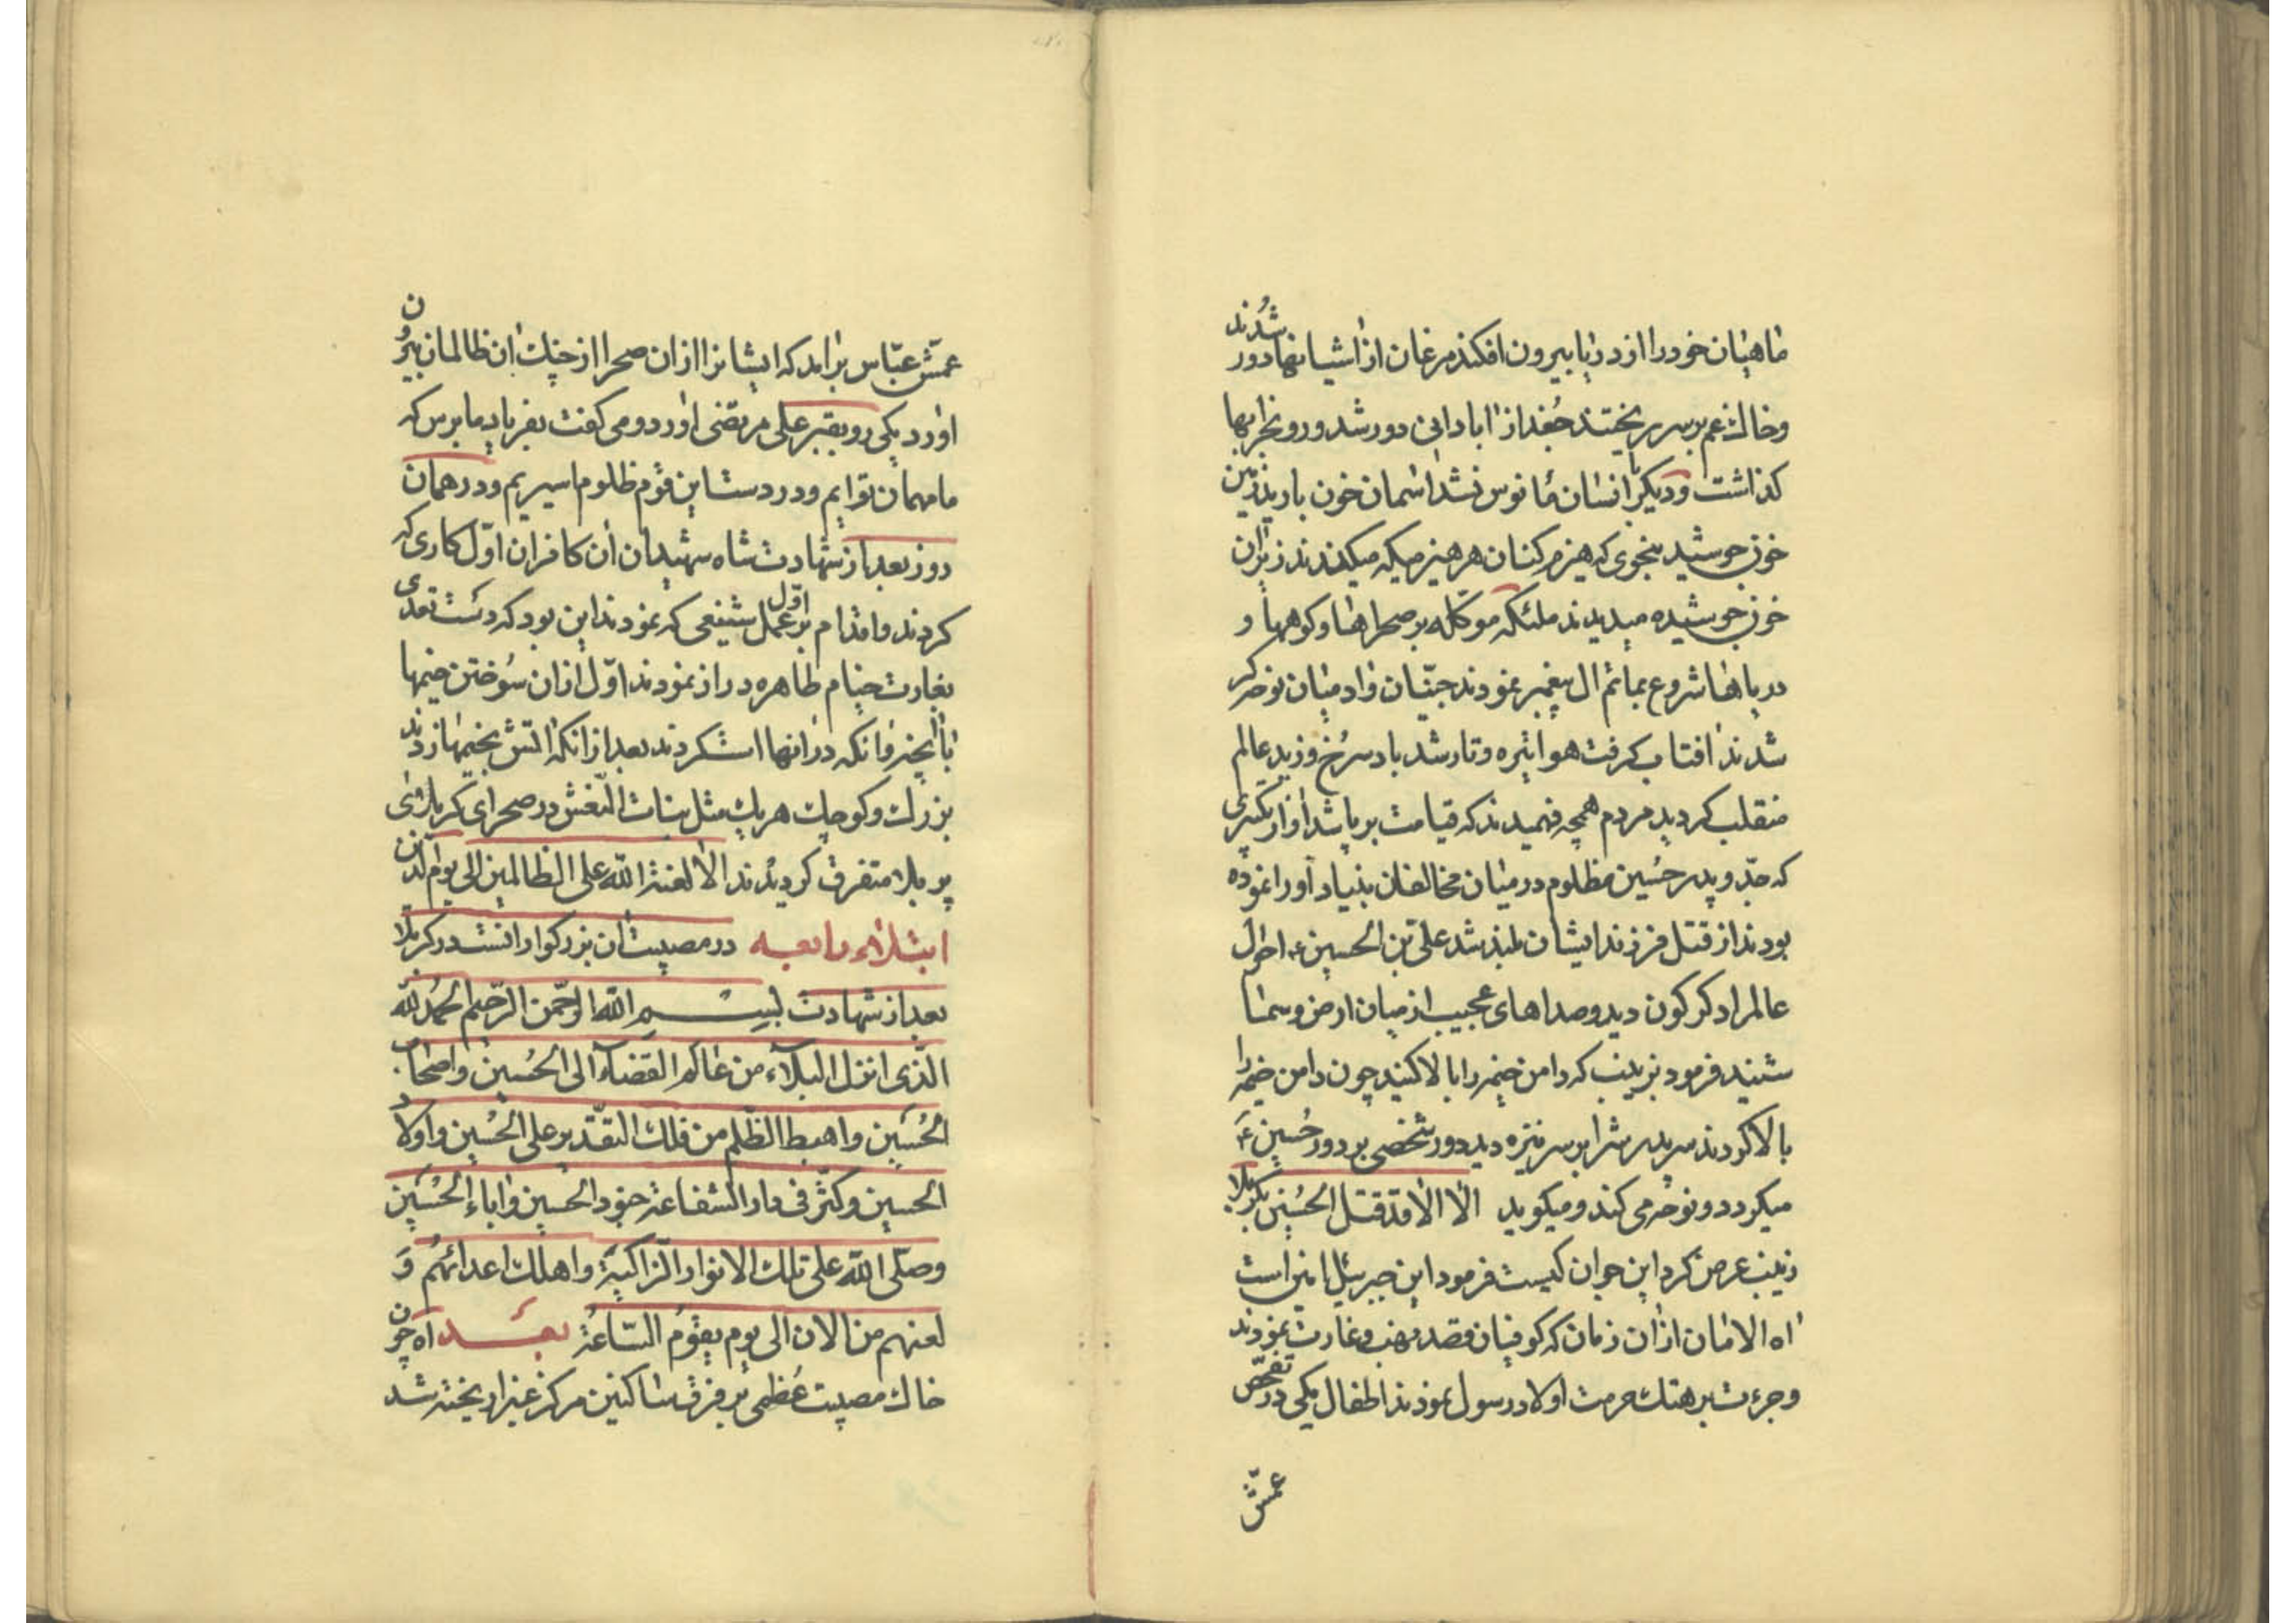 ماهیان خود را از دریا بیرون افکند مرغان از اشیانها دور شدند
وخاک غم بر سر ریختند جُغد از ابادانی دور شد و رو بخرابها
کذاشت و دیکر با انسان مانوس نشد اسمان خون بارید زمین
خون جوشید بنحوی که هیزم کنان هر هیزمیکه میکندند زیر ان
خون جوشیده میدیدند ملئکه موکله بر صحراها وکوهها و
دریاها شروع بماتم ال پیغمبر نمودند جنّیان وادمیان نوحه کر
شدند افتاب کرفت هوا تیره وتار شد باد سرُخ وزید عالم
منقلب کردید مردم همچه فهمیدند که قیامت برپا شد اواز تکبیری
که جدّ و پدر حُسین مظلوم در میان مخالفان بنیاد آورا نموده
بودند از قتل فرزند ایشان بلند شد علی بن الحسین ع احوال
عالم را دکرکون دید وصداهای عجیب از میان ارض وسما
شنید فرمود بزینب که دامن خیمه را بالا کنید چون دامن خیمه را
بالا کردند سر پدرش را بر سر نیزه دید دور شخصی بر دور حُسین ع
میکردد و نوحه می کند و میکوید الا الا قد قتل الحُسین بکربلا
زینب عرض کرد این جوان کیست فرمود این جبرئیل امین است
اه الامان از ان زمان که کوفیان قصد نهب وغارت نمودند
وجرءت بر هتک حرمت اولاد رسول نمودند اطفال یکی در تفحّص
عمّش
عمّش عبّاس برامد که ایشانرا ازان صحرا از چنک ان ظالمان بیرون
اورد یکی رو بقبر علی مرتضی اورد و می کفت بفریاد ما برس که
ما مهمان توایم و در دست این قوم ظلوم اسیریم و در همان
روز بعد از شهادت شاه شهیدان ان کافران اوّل کاری که
کردند واقدام بر اوّل عمل شنیعی که نمودند این بود که دست تعدی
بغارت خیام طاهره دراز نمودند اوّل ازان سُوختن خیمها
با انچنه وانکه در انها است کردند بعد از انکه اتش بخیمها زدند
بزرک وکوچک هریک مثل بنات النّعش در صحرای کربلای
پر بلا متفرق کردیدند الا لعنة الله علی الظالمین الی یوم الدّین
ابتلاء رابعه در مصیبت ان بزرکوار انست در کربلا
بعد از شهادت بسم الله الرّحمن الرّحیم الحَمدُ لله
الّذی انزل البلآء من عالم القضآء الی الحُسین واصحاب
الحُسَین واهبط الظلم من فلک التقدیر علی الحُسین واولاد
الحسین وکثّر فی دار الشفاعة جنود الحسین واباء الحُسَین
وصلّی الله علی تلک الانوار الزّاکیة واهلک اعدائهُم وَ
لعنهم من الان الی یوم یقوُم السّاعةُ بعَد اه چون
خاک مصیبت عُظمی بر فرق ساکنین مرکز غبرا ریخته شد